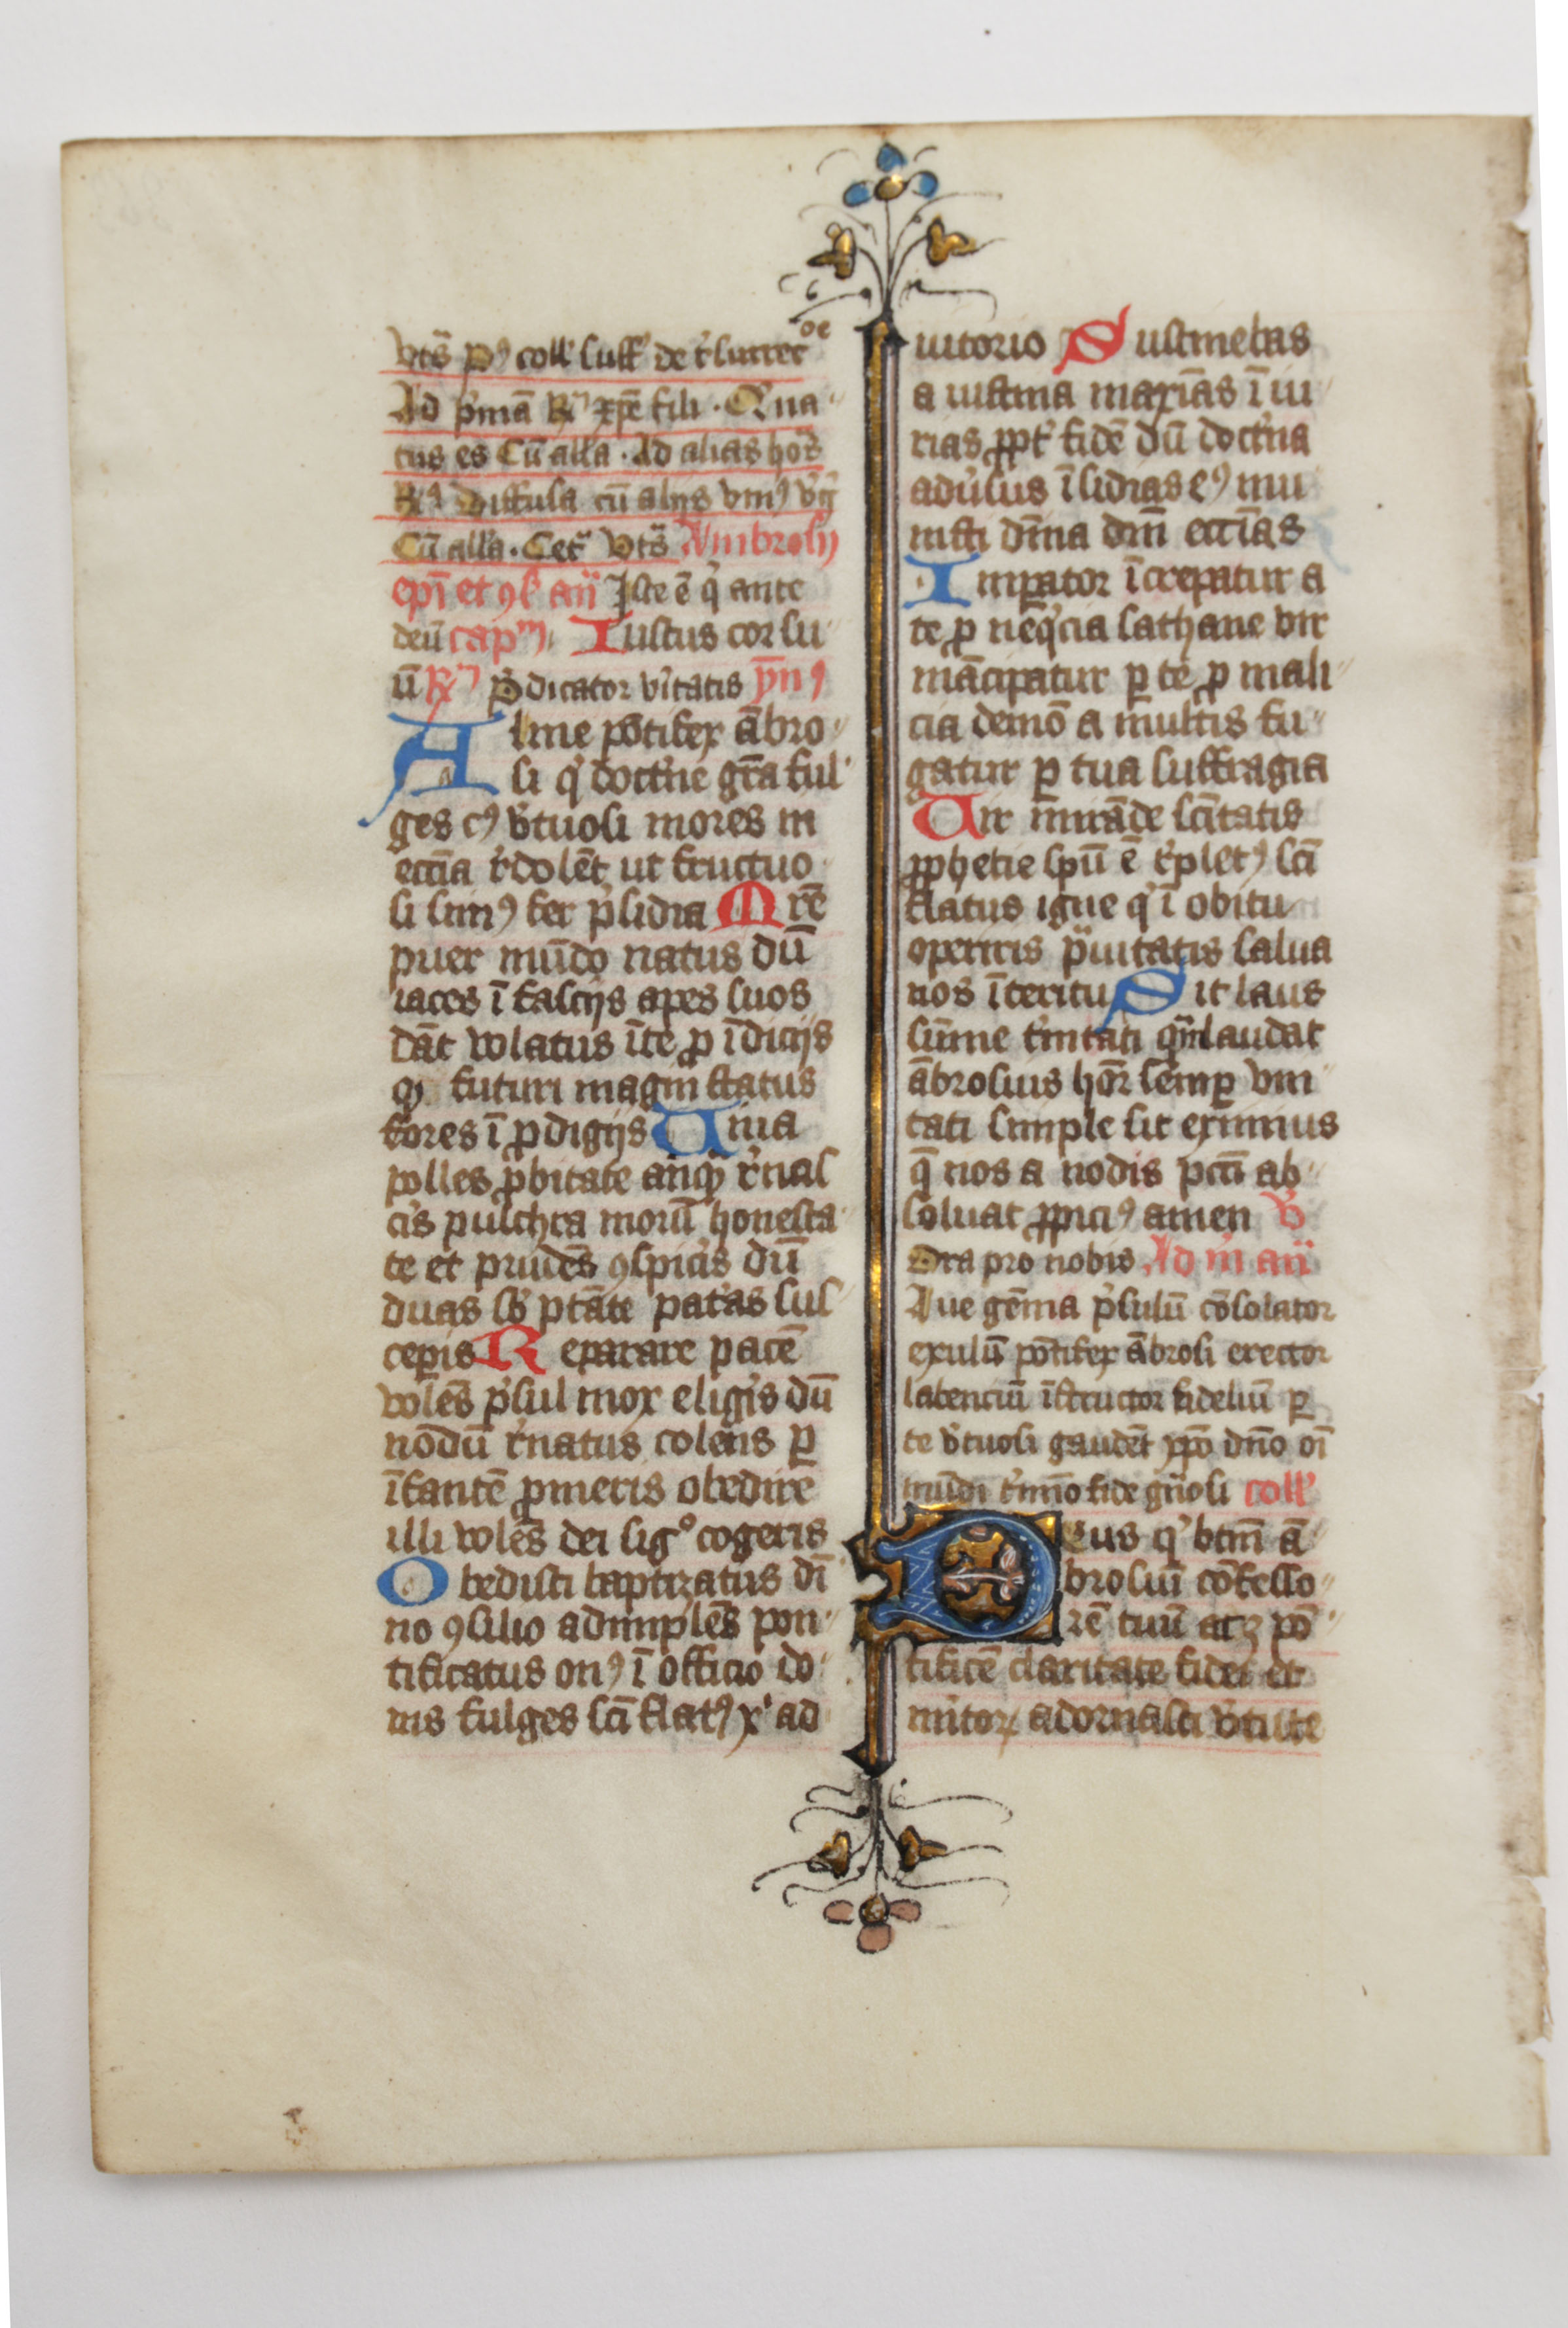 vts̄ p⁹ coll' suff' de r'surrecoe
Ad p'mā R̷ xp̄e fili · Q' na
tus es Cū alla · Ad alias hor̄
R̷ Diffusa cū alijs vni⁹ v'ḡ
Cū alla · Cet' vts̄ Ambrosij
ep̄i et ꝯf' an̄ Iste ē q' ante
deū cap'm Iustus cor su
ū R̷ p̄dicator v'itatis ẏn⁹
Alme pōtifex ābro
si q' doct'ne gr̄a ful
ges c⁹ v'tuosi mores in
eccīa r'dolēt ut fructuo
si sim⁹ fer p'sidia Mr̄ē
puer mūdo natus dū
iaces ī fascijs apes suos
dāt volatus ī te ꝓ īdicijs
ꝙ futuri magni status
fores ī ꝓdigijs Viua
polles ꝓbitate anq̄ r'nas
c'is pulchra morū honesta
te et prudēs ꝯspic'is dū
duas sb' ptāte pat'as sus
cepis Reparare pacē
volēs p'sul mox elig'is dū
nōdū r'natus colēris ꝑ
īfantē ꝓmeris obedire
illi volēs dei sigº cogeris
Obedisti baptizatus di
no ꝯsilio adimplēs pon
tificatus on⁹ ī officio do
nis fulges scī flat⁹ x' ad
iutorio Sustinebas
a iustina maxīas ī iu
rias ꝓpt' fidē dū doct'na
adu'sus īsidias e⁹ mu
nisti dīna dn̄i eccīas
Impator īcrepatur a
te ꝓ neq'cia sathane vir
mācipatur ꝑ te ꝓ mali
cia demō a multis fu
gatur ꝑ tua suffragia
Vir mirāde sc̄itatis
ꝓphetie spū ē r'plet⁹ scī
flatus igne q' ī obitu
operiris p'uitatis salua
nos īteritu Sit laus
sūme t'nitati quā laudat
ābrosius hōr semꝑ vni
tati simple sit eximius
q̄ nos a nodis pccū ab
soluat ꝓpici⁹ amen V'
Ora pro nobis Ad m̄ an̄
Aue gēma p'sulū cōsolator
exulū pōtifex ābrosi erector
labenciū īstructor fideliū ꝑ
te v'tuosi gaudēt xp̄o dn̄o oī
mūdi t'mīo fide gn̄osi coll'
Deus q' btm̄ ā
brosiū cōfesso
rē tuū atꝫ pō
tificē claritate fidei et
m'itoꝝ adornasti v'tute